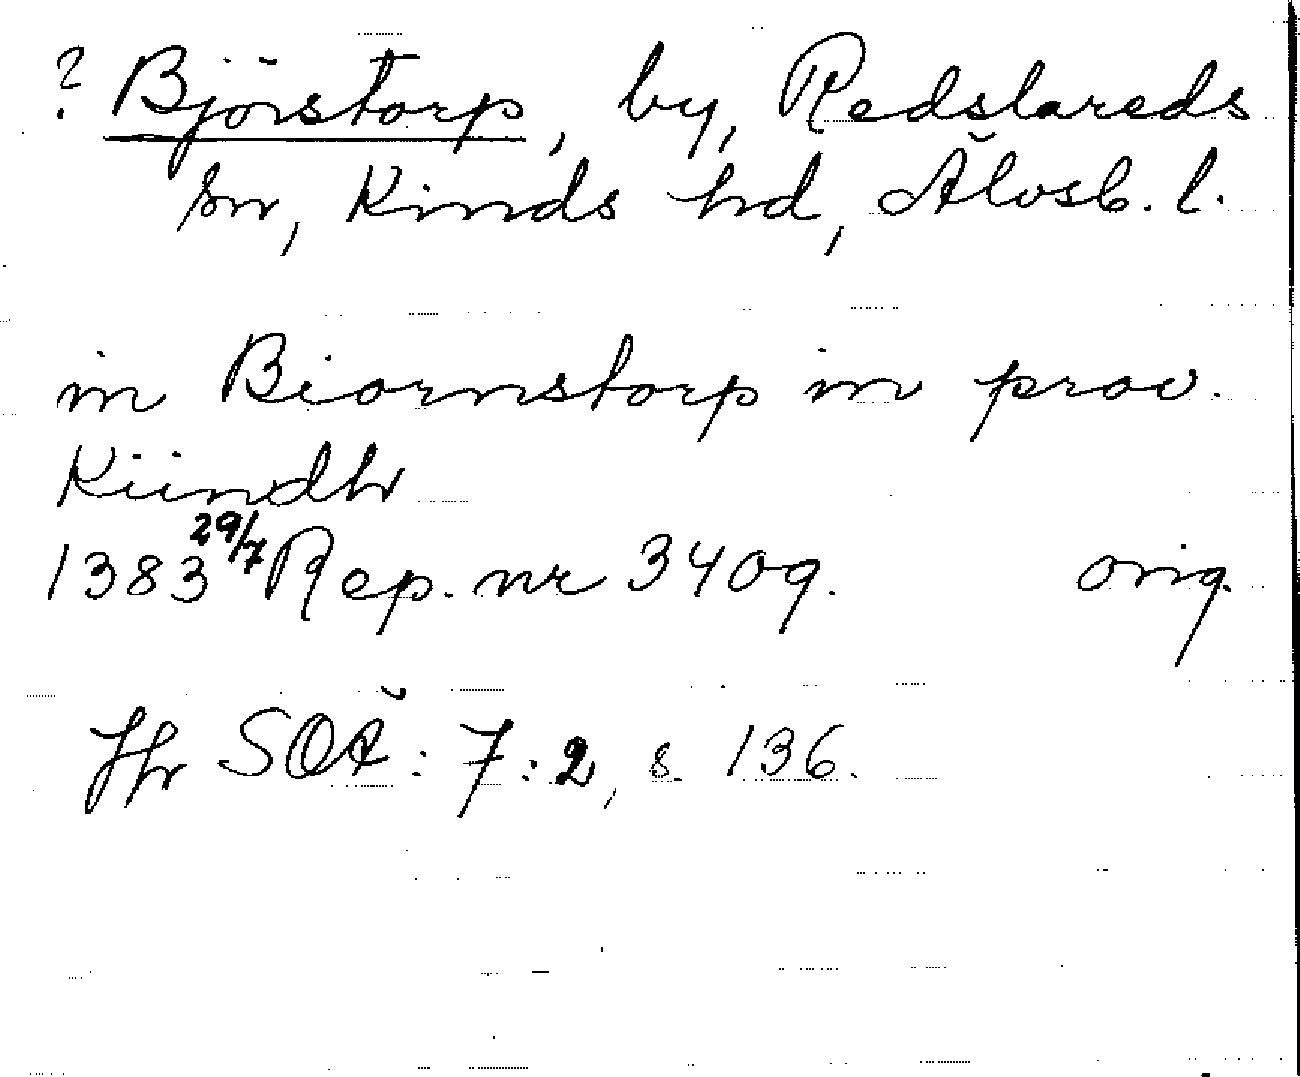 ? Björstorp, by, Redslareds
sn, Kinds hd, Älvsb. l.
in Biornstorp in prov.
Kiindhr
1383 29/7 Rep. nr 3409. orig.
Jfr SOÄ: 7:2, s. 136.